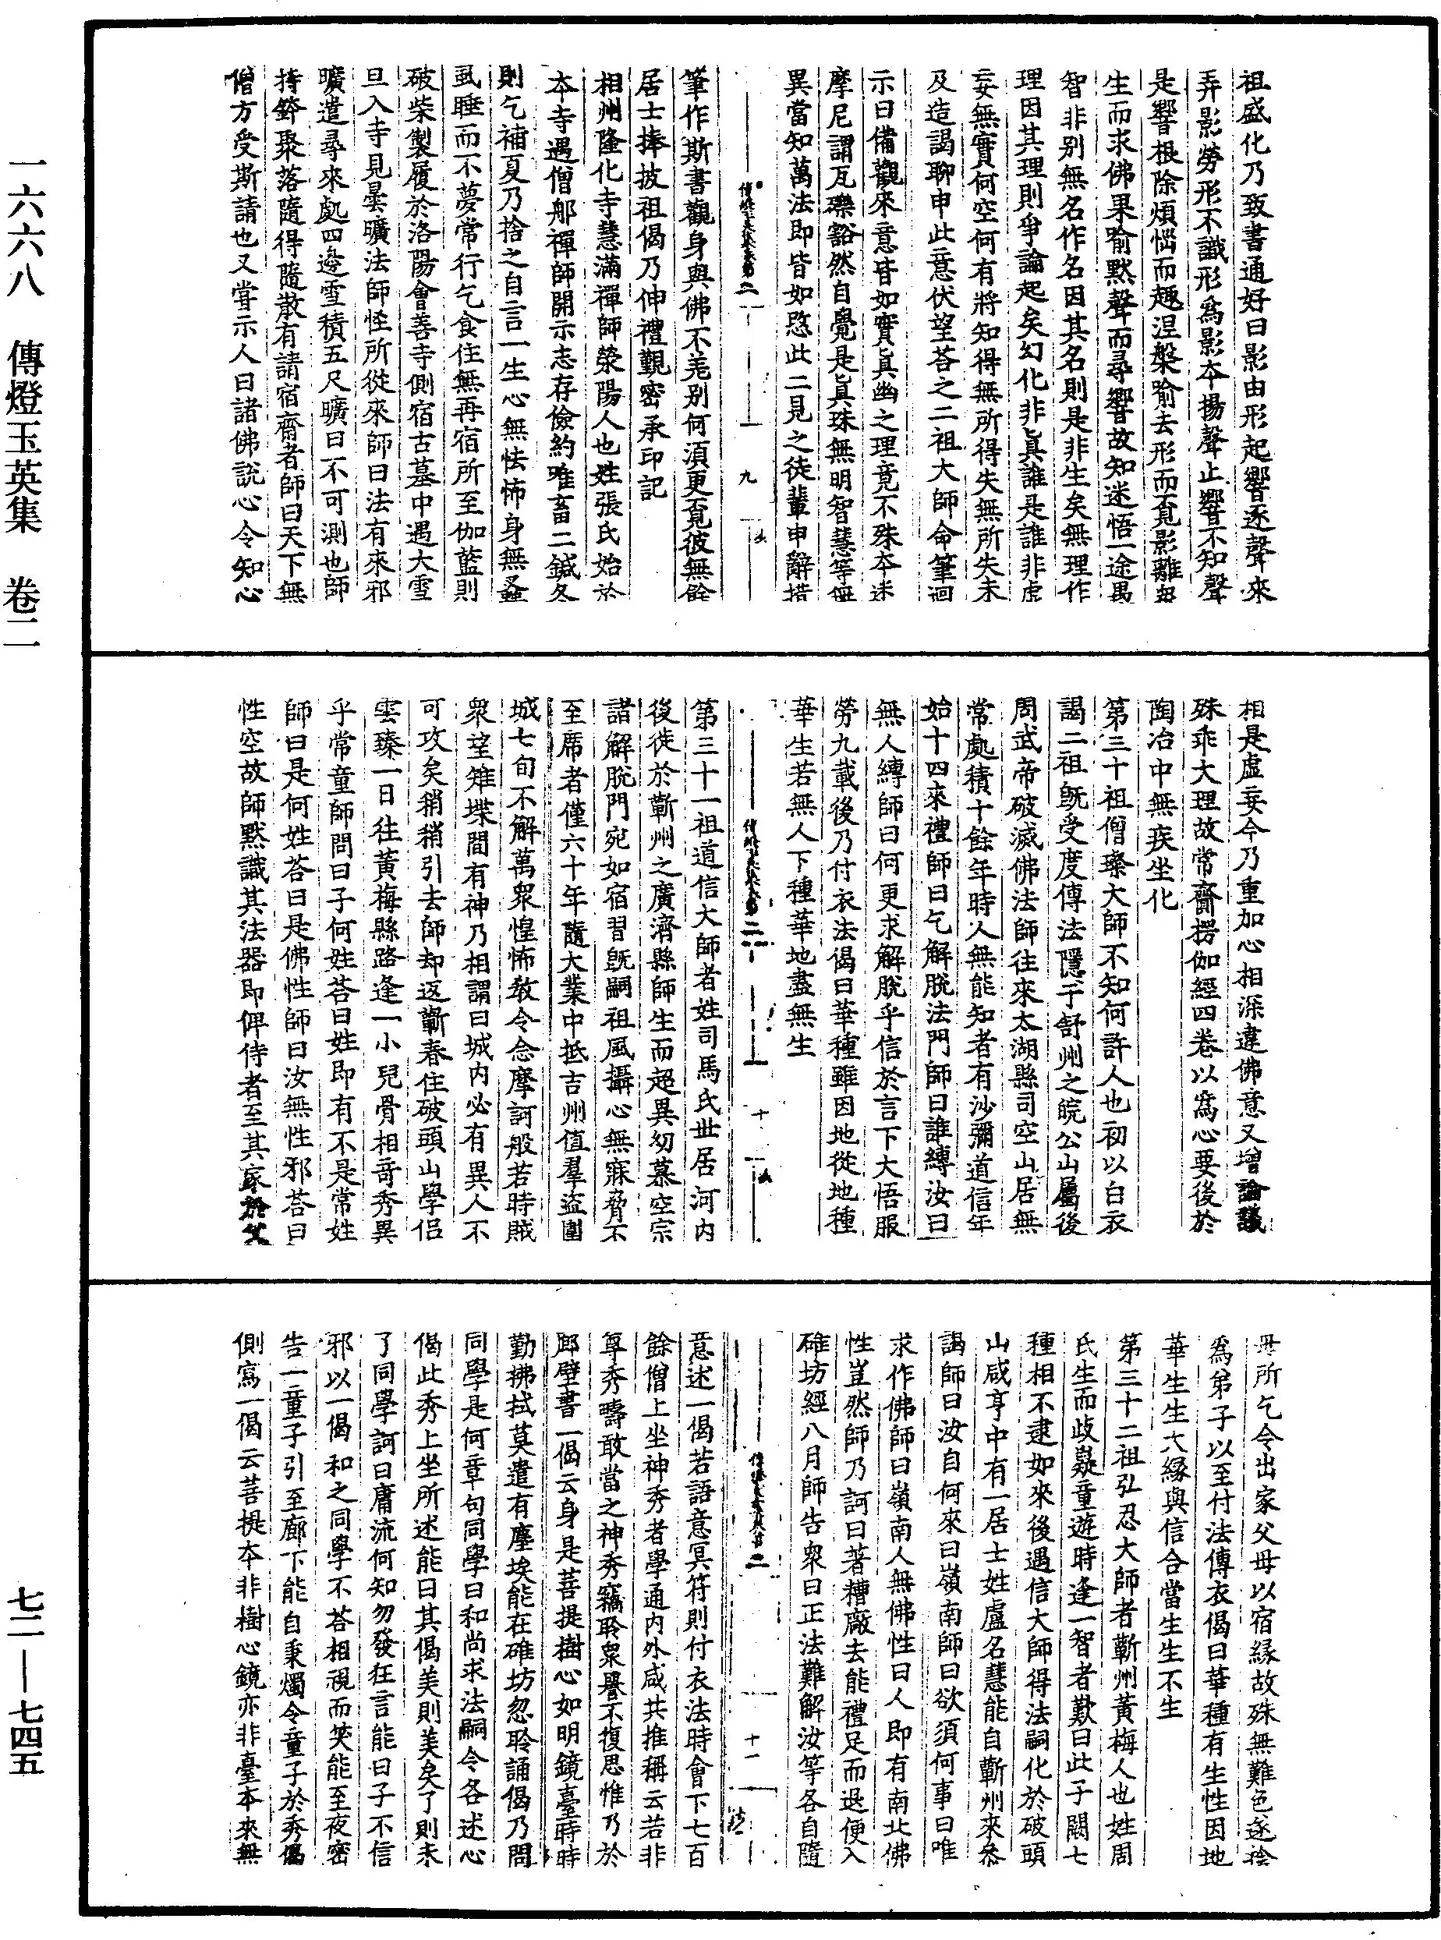 一六六八　傳燈玉英集　卷二
七二—七四五
祖盛化乃致書通好曰影由形起響逐聲來
弄影勞形不識形爲影本揚聲止響不知聲
是響根除煩惱而趣涅槃喻去形而覓影離衆
生而求佛果喻默聲而尋響故知迷悟一途愚
智非别無名作名因其名則是非生矣無理作
理因其理則爭論起矣幻化非眞誰是誰非虛
妄無實何空何有將知得無所得失無所失未
及造謁聊申此意伏望荅之二祖大師命筆迴
示曰備觀來意皆如實眞幽之理竟不殊本迷
摩尼謂瓦礫豁然自覺是眞珠無明智慧等無
異當知萬法即皆如愍此二見之徒輩申辭措
傳燈玉英集卷第二　九
筆作斯書觀身與佛不差别何須更覓彼無餘
居士捧披祖偈乃伸禮觀密承印記
相州隆化寺慧滿禪師滎陽人也姓張氏始於
本寺遇僧那禪師開示志存儉約唯畜二鍼冬
則乞補夏乃捨之自言一生心無怯怖身無蚤
虱睡而不夢常行乞食住無再宿所至伽藍則
破柴製履於洛陽會善寺側宿古墓中遇大雪
旦入寺見曇曠法師怪所從來師曰法有來邪
曠遣尋來處四邊雪積五尺曠曰不可測也師
持鉢聚落隨得隨散有請宿齋者師曰天下無
僧方受斯請也又嘗示人曰諸佛說心令知心
相是虛妄今乃重加心相深違佛意又增論議
殊乖大理故常齎楞伽經四卷以爲心要後於
陶冶中無疾坐化
第三十祖僧璨大師不知何許人也初以白衣
謁二祖旣受度傳法隱于舒州之皖公山屬後
周武帝破滅佛法師往來太湖縣司空山居無
常處積十餘年時人無能知者有沙彌道信年
始十四來禮師曰乞解脫法門師曰誰縛汝曰
無人縛師曰何更求解脫乎信於言下大悟服
勞九載後乃付衣法偈曰華種雖因地從地種
華生若無人下種華地盡無生
傳燈玉英集卷第二　十
第三十一祖道信大師者姓司馬氏世居河内
後徙於蘄州之廣濟縣師生而超異幼慕空宗
諸解脫門宛如宿習旣嗣祖風攝心無寐脅不
至席者僅六十年隨大業中抵吉州值羣盜圍
城七旬不解萬衆惶怖敎令念摩訶般若時賊
衆望雉堞間有神乃相謂曰城内必有異人不
可攻矣稍稍引去師却返蘄春住破頭山學侣
雲臻一日往黃梅縣路逢一小兒骨相竒秀異
乎常童師問曰子何姓荅曰姓即有不是常姓
師曰是何姓荅曰是佛性師曰汝無性邪荅曰
性空故師默識其法器即俾侍者至其家於父
母所乞令出家父母以宿緣故殊無難色遂捨
爲弟子以至付法傳衣偈曰華種有生性因地
華生生大緣與信合當生生不生
第三十二祖弘忍大師者蘄州黃梅人也姓周
氏生而歧嶷童遊時逢一智者歎曰此子闕七
種相不逮如來後遇信大師得法嗣化於破頭
山咸亨中有一居士姓盧名慧能自蘄州來叅
謁師曰汝自何來曰嶺南師曰欲須何事曰唯
求作佛師曰嶺南人無佛性曰人即有南北佛
性豈然師乃訶曰著糟廠去能禮足而退便入
碓坊經八月師告衆曰正法難解汝等各自隨
傳燈玉英集卷第二　十一
意述一偈若語意冥符則付衣法時會下七百
餘僧上坐神秀者學通内外咸共推稱云若非
尊秀疇敢當之神秀竊聆衆譽不復思惟乃於
郎壁書一偈云身是菩提樹心如明鏡臺時時
勤拂拭莫遣有塵埃能在碓坊忽聆誦偈乃問
同學是何章句同學曰和尚求法嗣令各述心
偈此秀上坐所述能曰其偈美則美矣了則未
了同學訶曰庸流何知勿發狂言能曰子不信
邪以一偈和之同學不荅相視而笑能至夜密
告一童子引至廊下能自秉燭令童子於秀偈
側寫一偈云菩提本非樹心鏡亦非臺本來無